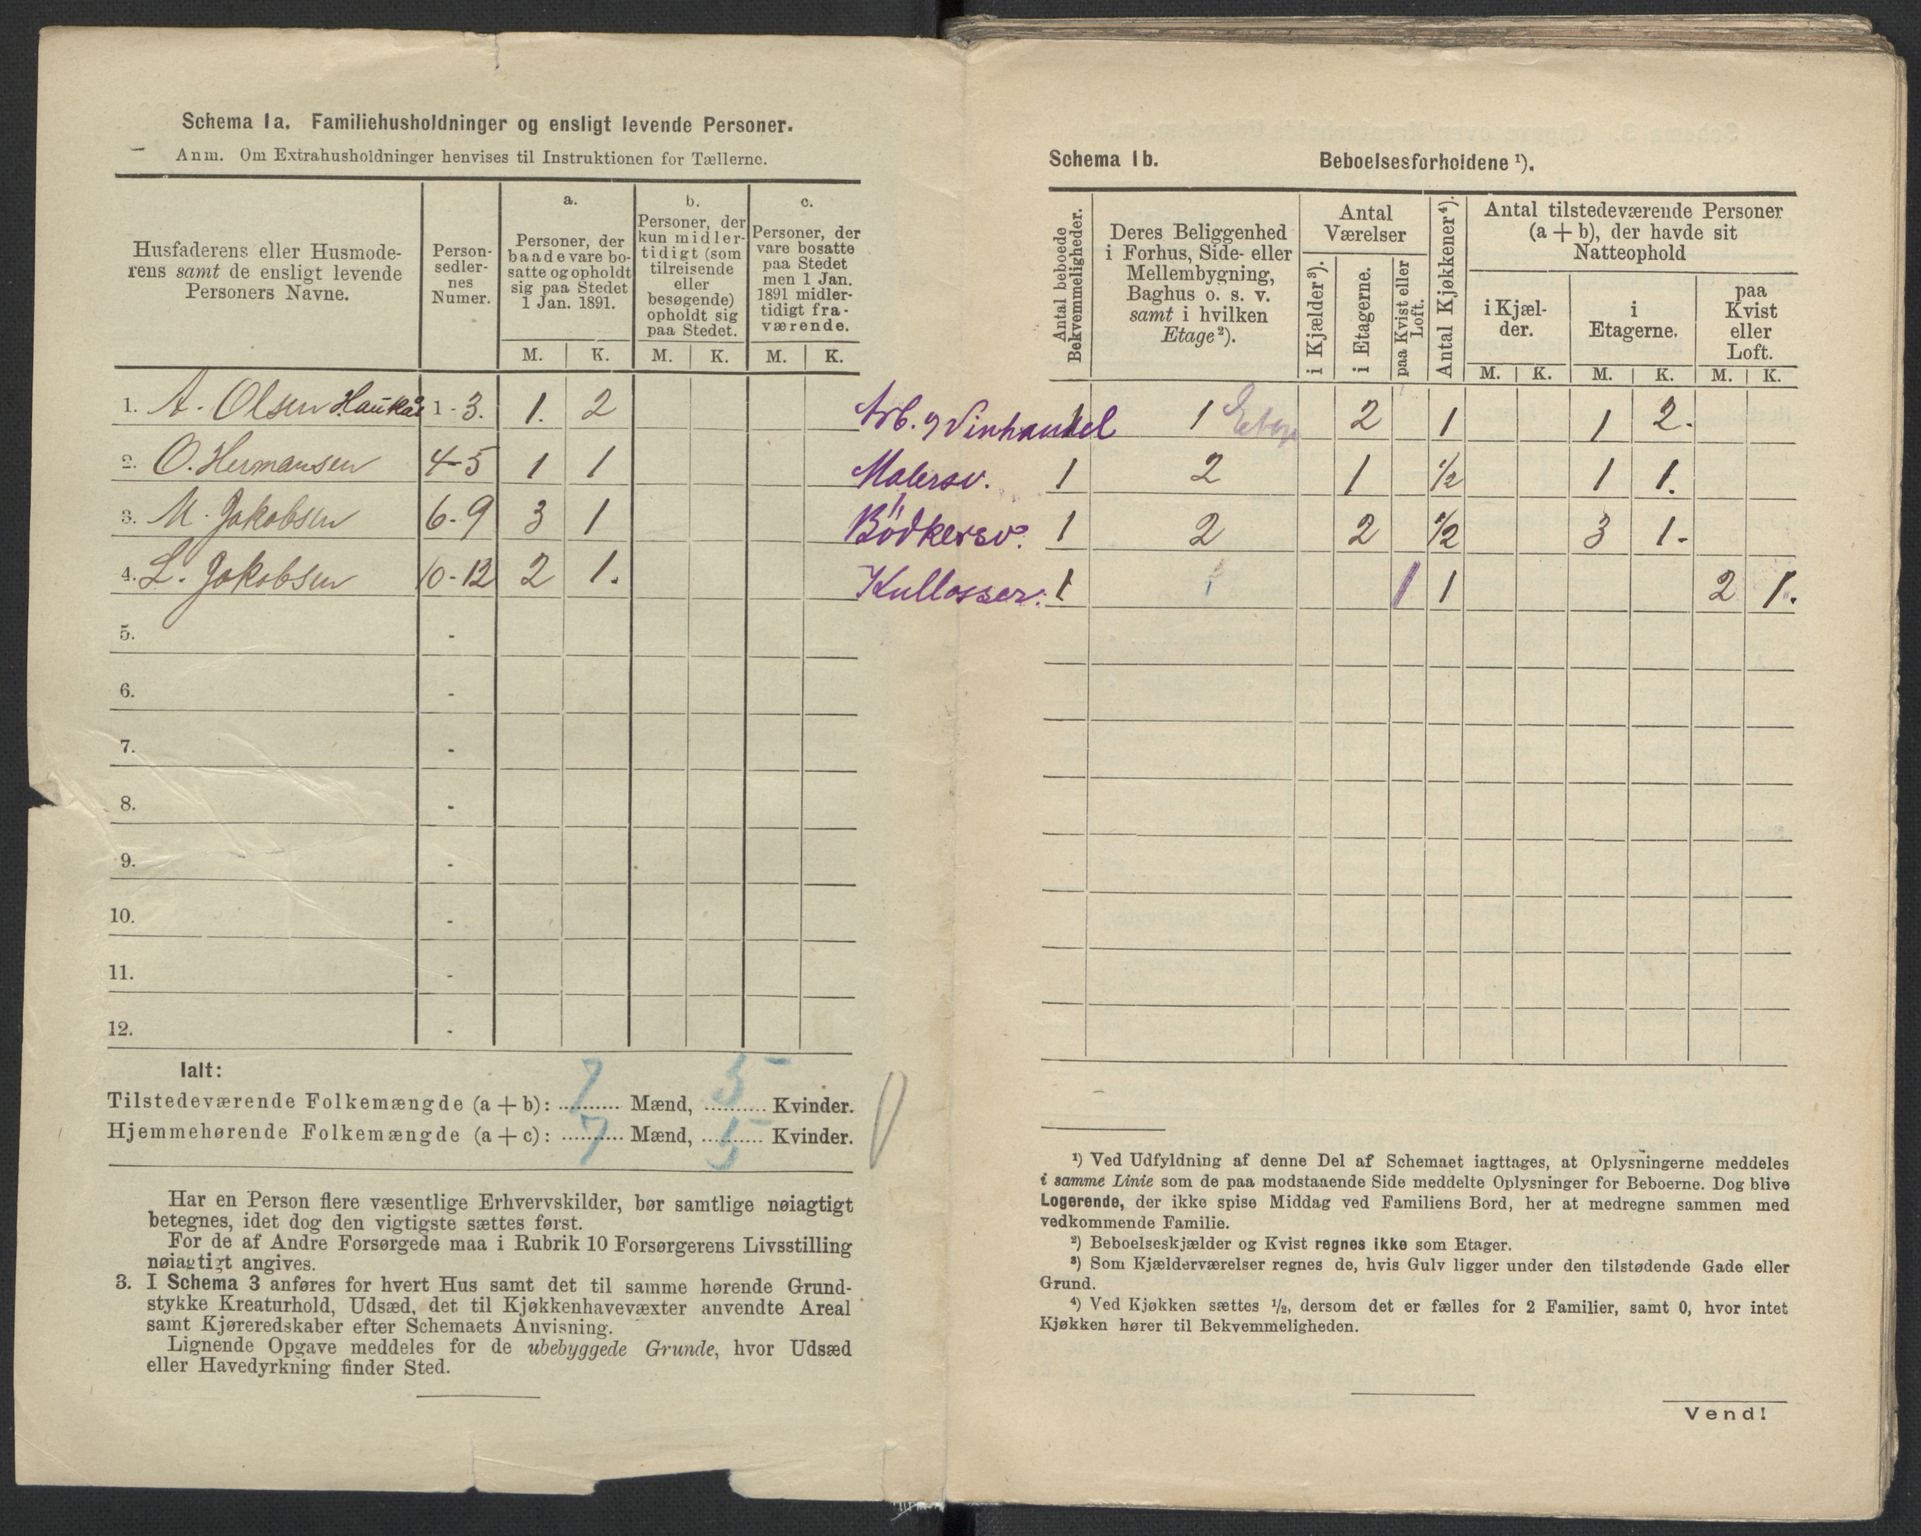 Schema 1a. Familiehusholdninger og ensligt levende Personer.
Anm. Om Extrahusholdninger henvises til Instruktionen for Tællerne.
Husfaderens eller Husmode-
rens samt de ensligt levende
Personers Navne.
Person-
sedler-
nes
Numer.
a.
Personer, der
baade vare bo-
satte og opholdt
sig paa Stedet
1 Jan. 1891.
b.
Personer, der
kun midler-
tidigt (som
tilreisende
eller
besøgende)
opholdt sig
paa Stedet.
c.
Personer, der
vare bosatte
paa Stedet
men 1 Jan.
1891 midler-
tidigt fra-
værende.
M. K. M. K. M. K.
1. A. Olsen 1-3. 1. 2
2. O. Hermansen 4-5 1 1
3. M. Jakobsen 6-9 3 1
4. L. Jakobsen 10-12 2 1.
5. -
6. -
7. -
8. -
9. -
10. -
11. -
12. -
Ialt:
Tilstedeværende Folkemængde (a + b): 7 Mænd, 5 Kvinder.
Hjemmehørende Folkemængde (a + c): 7 Mænd, 5 Kvinder.
Har en Person flere væsentlige Erhvervskilder, bør samtlige nøiagtigt
betegnes, idet dog den vigtigste sættes først.
For de af Andre Forsørgede maa i Rubrik 10 Forsørgerens Livsstilling
nøiagtigt angives.
3. I Schema 3 anføres for hvert Hus samt det til samme hørende Grund-
stykke Kreaturhold, Udsæd, det til Kjøkkenhavevæxter anvendte Areal
samt Kjøreredskaber efter Schemaets Anvisning.
Lignende Opgave meddeles for de ubebyggede Grunde, hvor Udsæd
eller Havedyrkning finder Sted.
Schema 1b. Beboelsesforholdene ¹).
Antal beboede
Bekvemmeligheder.
Deres Beliggenhed
i Forhus, Side- eller
Mellembygning,
Baghus o. s. v.
samt i hvilken
Etage ²).
Antal
Værelser
i Kjælder ³).
i Etagerne.
paa Kvist eller
Loft.
Antal Kjøkkener ⁴).
Antal tilstedeværende Personer
(a + b), der havde sit
Natteophold
i Kjæl-
der.
i
Etagerne.
paa
Kvist
eller
Loft.
M. K. M. K. M. K.
Arb. Vinhandel 1 1 Etage 2 1 1 2.
Malersv. 1 2 1 ½ 1 1.
Bödkersv. 1 2 2 ½ 3 1.
Kullosser. 1 1 1 1 2 1.
¹) Ved Udfyldning af denne Del af Schemaet iagttages, at Oplysningerne meddeles
i samme Linie som de paa modstaaende Side meddelte Oplysninger for Beboerne. Dog blive
Logerende, der ikke spise Middag ved Familiens Bord, her at medregne sammen med
vedkommende Familie.
²) Beboelseskjælder og Kvist regnes ikke som Etager.
³) Som Kjælderværelser regnes de, hvis Gulv ligger under den tilstødende Gade eller
Grund.
⁴) Ved Kjøkken sættes ½, dersom det er fælles for 2 Familier, samt 0, hvor intet
Kjøkken hører til Bekvemmeligheden.
Vend!